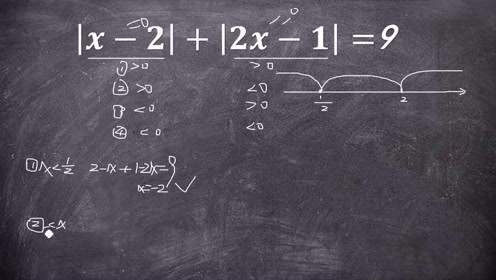 =0 >0
|x - 2| + |2x - 1| = 9
① >0 >0
② >0 <0
<0 >0
④ <0 <0
1/2 2
① x < 1/2 2-x + 1-2x = 9
x = -2 ✓
② < x